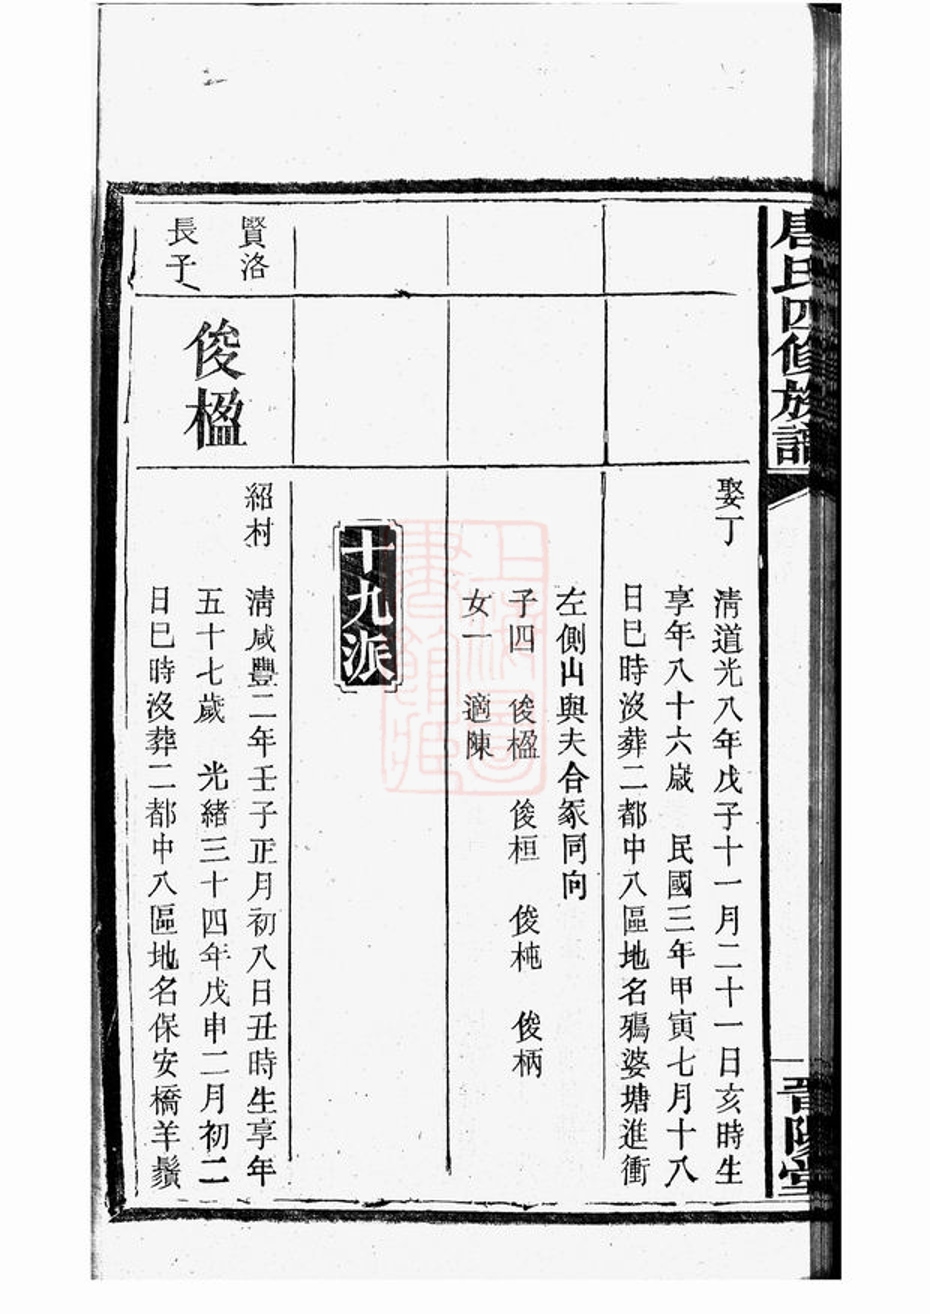 唐氏四修族譜
晉陽堂
娶丁
清道光八年戊子十一月二十一日亥時生
享年八十六嵗 民國三年甲寅七月十八
日巳時沒葬二都中八區地名鴉婆塘進衝
左側山與夫合冢同向
子四 俊楹 俊桓 俊杶 俊柄
女一 適陳
十九派
賢洛
長子
俊楹
紹村 清咸豐二年壬子正月初八日丑時生享年
五十七歲 光緒三十四年戊申二月初二
日巳時沒葬二都中八區地名保安橋羊鬚
上海圖書館藏